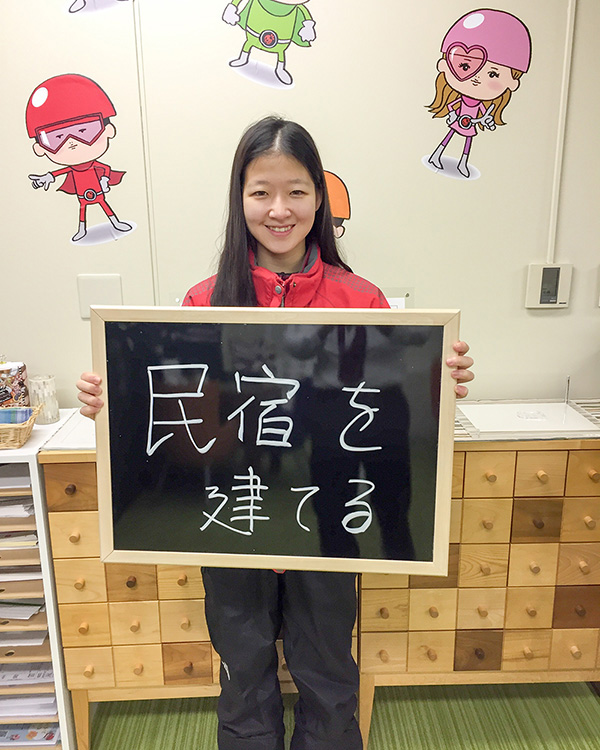 民宿を
建てる